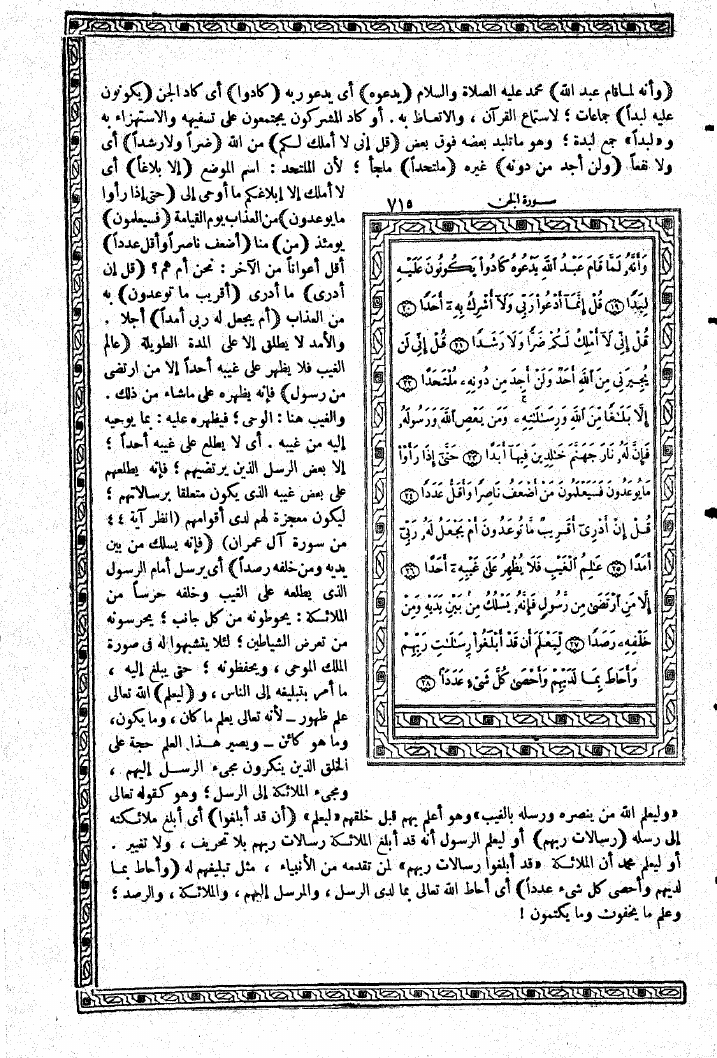 (وأنه لما قام عبد الله) محمد عليه الصلاة والسلام (يدعوه) أى يدعو ربه (كادوا) أى كاد الجن (يكونون
عليه لبداً) جماعات ؛ لاستماع القرآن ، والاتعاظ به . أو كاد المشركون يجتمعون على تسفيهه والاستهزاء به
و«لبداً» جمع لبدة ؛ وهو ما تلبد بعضه فوق بعض (قل إنى لا أملك لكم) من الله (ضراً ولا رشداً) أى
ولا نفعاً (ولن أجد من دونه) غيره (ملتحداً) ملجأ ؛ لأن الملتحد : اسم الموضع (إلا بلاغاً) أى
لا أملك إلا إبلاغكم ما أوحى إلى (حتى إذا رأوا
ما يوعدون) من العذاب يوم القيامة (فسيعلمون)
يومئذ (من) منا (أضعف ناصراً وأقل عدداً)
أقل أعواناً من الآخر : نحن أم هم ؟ (قل إن
أدرى) ما أدرى (أقريب ما توعدون) به
من العذاب (أم يجعل له ربى أمداً) أجلا .
والأمد لا يطلق إلا على المدة الطويلة (عالم
الغيب فلا يظهر على غيبه أحداً إلا من ارتضى
من رسول) فإنه يظهره على ماشاء من ذلك .
والغيب هنا : الوحى ؛ فيظهره عليه : بما يوحيه
إليه من غيبه . أى لا يطلع على غيبه أحداً ؛
إلا بعض الرسل الذين يرتضيهم ؛ فإنه يطلعهم
على بعض غيبه الذى يكون متعلقا برسالاتهم ؛
ليكون معجزة لهم لدى أقوامهم (انظر آية ٤٤
من سورة آل عمران) (فإنه يسلك من بين
يديه ومن خلفه رصداً) أى يرسل أمام الرسول
الذى يطلعه على الغيب وخلفه حرساً من
الملائكة : يحوطونه من كل جانب ؛ يحرسونه
من تعرض الشياطين ؛ لئلا يتشبهوا له فى صورة
الملك الموحى ، ويحفظونه ؛ حتى يبلغ إليه ،
ما أمر بتبليغه إلى الناس ، و (ليعلم) الله تعالى
علم ظهور – لأنه تعالى يعلم ما كان ، وما يكون،
وما هو كائن – ويصير هذا العلم حجة على
الخلق الذين ينكرون مجىء الرسل إليهم ،
ومجىء الملائكة إلى الرسل ؛ وهو كقوله تعالى
سورة الجن ٧١٥
وَأَنَّهُۥ لَمَّا قَامَ عَبْدُ ٱللَّهِ يَدْعُوهُ كَادُوا۟ يَكُونُونَ عَلَيْهِ
لِبَدًا ١٩ قُلْ إِنَّمَآ أَدْعُوا۟ رَبِّى وَلَآ أُشْرِكُ بِهِۦٓ أَحَدًا ٢٠
قُلْ إِنِّى لَآ أَمْلِكُ لَكُمْ ضَرًّا وَلَا رَشَدًا ٢١ قُلْ إِنِّى لَن
يُجِيرَنِى مِنَ ٱللَّهِ أَحَدٌ وَلَنْ أَجِدَ مِن دُونِهِۦ مُلْتَحَدًا ٢٢
إِلَّا بَلَٰغًا مِّنَ ٱللَّهِ وَرِسَٰلَٰتِهِۦ وَمَن يَعْصِ ٱللَّهَ وَرَسُولَهُۥ
فَإِنَّ لَهُۥ نَارَ جَهَنَّمَ خَٰلِدِينَ فِيهَآ أَبَدًا ٢٣ حَتَّىٰٓ إِذَا رَأَوْا۟
مَا يُوعَدُونَ فَسَيَعْلَمُونَ مَنْ أَضْعَفُ نَاصِرًا وَأَقَلُّ عَدَدًا ٢٤
قُلْ إِنْ أَدْرِىٓ أَقَرِيبٌ مَّا تُوعَدُونَ أَمْ يَجْعَلُ لَهُۥ رَبِّىٓ
أَمَدًا ٢٥ عَٰلِمُ ٱلْغَيْبِ فَلَا يُظْهِرُ عَلَىٰ غَيْبِهِۦٓ أَحَدًا ٢٦
إِلَّا مَنِ ٱرْتَضَىٰ مِن رَّسُولٍ فَإِنَّهُۥ يَسْلُكُ مِنۢ بَيْنِ يَدَيْهِ وَمِنْ
خَلْفِهِۦ رَصَدًا ٢٧ لِّيَعْلَمَ أَن قَدْ أَبْلَغُوا۟ رِسَٰلَٰتِ رَبِّهِمْ
وَأَحَاطَ بِمَا لَدَيْهِمْ وَأَحْصَىٰ كُلَّ شَىْءٍ عَدَدًۢا ٢٨
«وليعلم الله من ينصره ورسله بالغيب» وهو أعلم بهم قبل خلقهم «ليعلم» (أن قد أبلغوا) أى أبلغ ملائكته
إلى رسله (رسالات ربهم) أو ليعلم الرسول أنه قد أبلغ الملائكة رسالات ربهم بلا تحريف ، ولا تغيير .
أو ليعلم محمد أن الملائكة «قد أبلغوا رسالات ربهم» لمن تقدمه من الأنبياء ، مثل تبليغهم له (وأحاط بما
لديهم وأحصى كل شىء عدداً) أى أحاط الله تعالى بما لدى الرسل ، والمرسل إليهم ، والملائكة ، والرصد ؛
وعلم ما يخفون وما يكتمون !